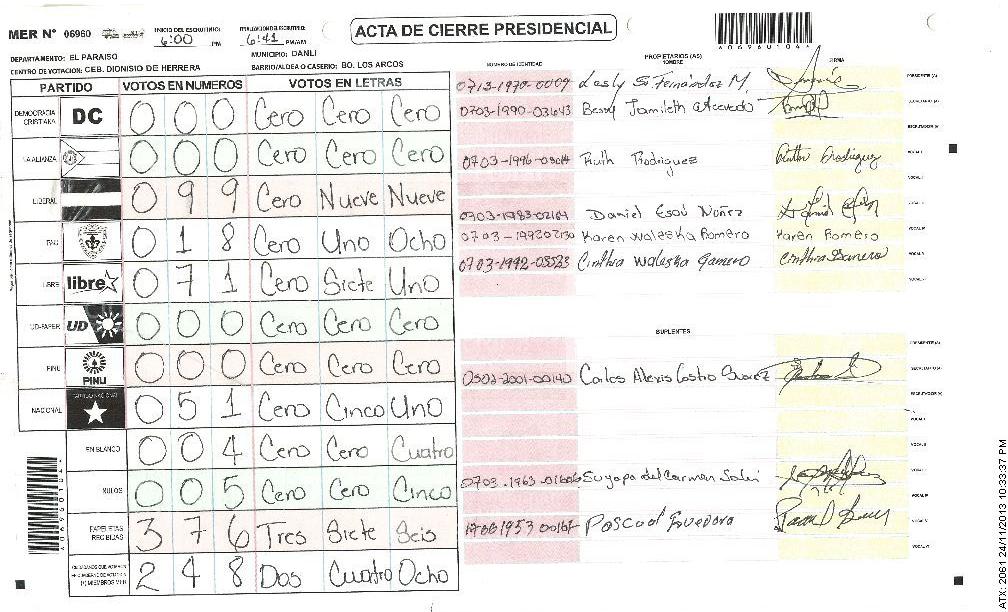 MER N° 06960
INICIO DEL ESCRUTINIO: 6:00 PM
6:41 PM/AM
ACTA DE CIERRE PRESIDENCIAL
4069601044
DEPARTAMENTO: EL PARAISO
MUNICIPIO: DANLI
CENTRO DE VOTACION: CEB. DIONISIO DE HERRERA
BARRIO/ALDEA O CASERIO: BO. LOS ARCOS
PARTIDO VOTOS EN NUMEROS VOTOS EN LETRAS
DEMOCRACIA CRISTIANA DC 0 0 0 Cero Cero Cero
LA ALIANZA 0 0 0 Cero Cero Cero
LIBERAL 0 9 9 Cero Nueve Nueve
PAC 0 1 8 Cero Uno Ocho
LIBRE libre 0 7 1 Cero Siete Uno
UD-FAPER UD 0 0 0 Cero Cero Cero
PINU PINU 0 0 0 Cero Cero Cero
NACIONAL 0 5 1 Cero Cinco Uno
EN BLANCO 0 0 4 Cero Cero Cuatro
NULOS 0 0 5 Cero Cero Cinco
PAPELETAS RECIBIDAS 3 7 6 Tres Siete Seis
2 4 8 Dos Cuatro Ocho
NUMERO DE IDENTIDAD
PROPIETARIOS (AS)
NOMBRE
FIRMA
0713-1970-0009 Lesly S. Fernández M. PRESIDENTE (A)
0703-1990-03643 Bessy Jamileth Acevedo SECRETARIO (A)
ESCRUTADOR (A)
Ruth Rodriguez Ruth Rodriguez VOCAL I
0703-1983-02164 Daniel Esaú Nuñez
0703-199202130 Karen Waleska Romero Karen Romero
0703-1992-03523 Cinthia Waleska Gamero Cinthia Gamero
SUPLENTES
PRESIDENTE (A)
Carlos Alexis Castro Suarez SECRETARIO (A)
ESCRUTADOR (A)
VOCAL I
VOCAL II
0703-1963-01606 Suyapa del Carmen
Pascual
ATX: 2061 24/11/2013 10:33:37 PM